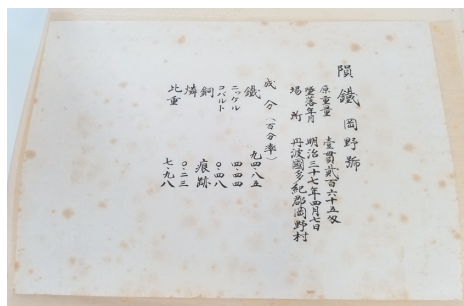 隕鐵 岡野號
原重量 壹貫貳百六十五匁
墜落年月 明治三十七年四月七日
場所 丹波國多紀郡岡野村
成分(百分率)
鐵 九四・八五
ニッケル 四・四四
コバルト 〇・四八
銅 痕跡
燐 〇・二三
比重 七・九八